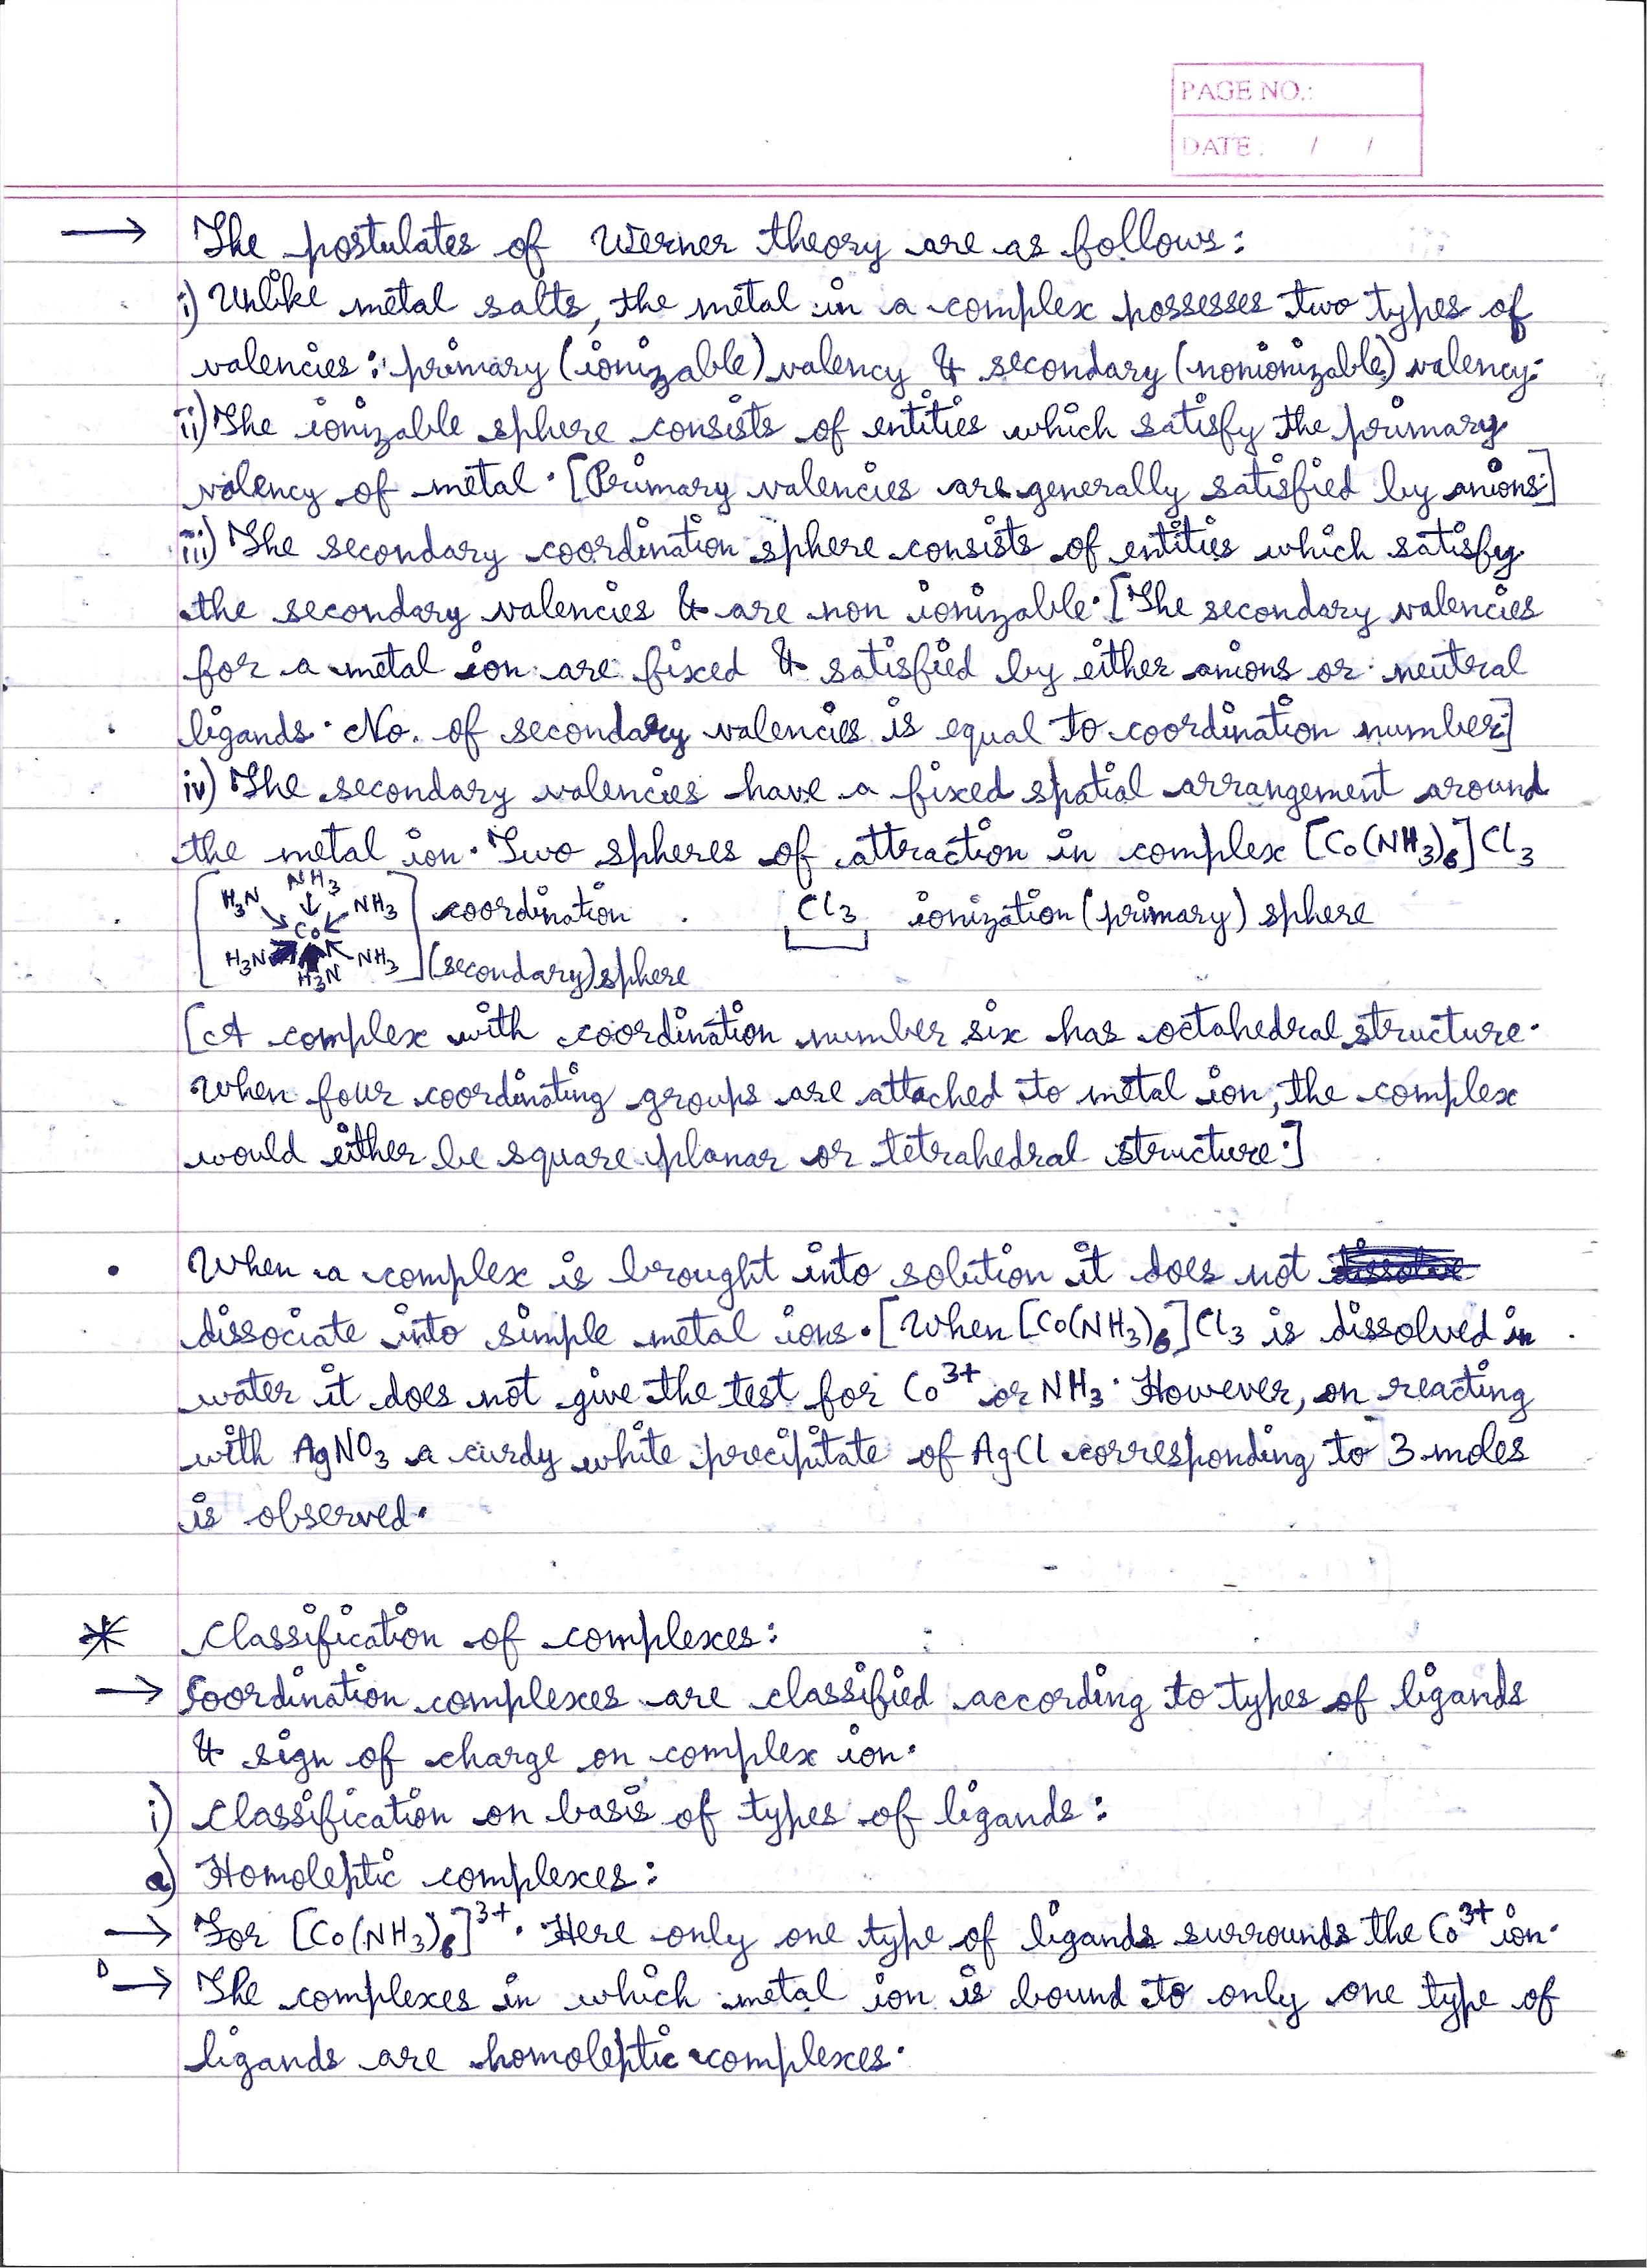 PAGE NO.:
DATE : / /
→ The postulates of Werner theory are as follows:
i) Unlike metal salts, the metal in a complex possesses two types of
valencies: primary (ionizable) valency & secondary (nonionizable) valency.
ii) The ionizable sphere consists of entities which satisfy the primary
valency of metal. [Primary valencies are generally satisfied by anions.]
iii) The secondary coordination sphere consists of entities which satisfy
the secondary valencies & are non ionizable. [The secondary valencies
for a metal ion are fixed & satisfied by either anions or neutral
ligands. No. of secondary valencies is equal to coordination number.]
iv) The secondary valencies have a fixed spatial arrangement around
the metal ion. Two spheres of attraction in complex [Co(NH3)6]Cl3
H3N NH3 NH3
Co
H3N H3N NH3
coordination
(secondary) sphere
Cl3 ionization (primary) sphere
[A complex with coordination number six has octahedral structure.
When four coordinating groups are attached to metal ion, the complex
would either be square planar or tetrahedral structure.]
• When a complex is brought into solution it does not dissolve
dissociate into simple metal ions. [When [Co(NH3)6]Cl3 is dissolved in
water it does not give the test for Co3+ or NH3. However, on reacting
with AgNO3 a curdy white precipitate of AgCl corresponding to 3 moles
is observed.
* Classification of complexes:
→ Coordination complexes are classified according to types of ligands
& sign of charge on complex ion.
i) Classification on basis of types of ligands:
a) Homoleptic complexes:
→ For [Co(NH3)6]3+. Here only one type of ligands surrounds the Co3+ ion.
→ The complexes in which metal ion is bound to only one type of
ligands are homoleptic complexes.